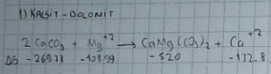 1) KALSİT - DOLOMİT
2 CaCO₃ + Mg⁺² → CaMg(CO₃)₂ + Ca⁺²
ΔG -269.78 -108.99 -520 -132.8